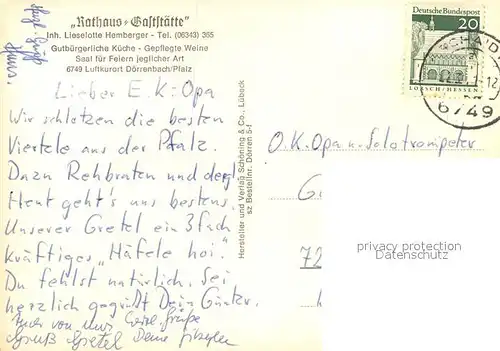 „Rathaus-Gaststätte"
Inh. Lieselotte Hemberger - Tel. (06343) 365
Gutbürgerliche Küche - Gepflegte Weine
Saal für Feiern jeglicher Art
6749 Luftkurort Dörrenbach/Pfalz
Lieber E.K.-Opa
Wir schlotzen die besten
Viertele aus der Pfalz.
Dazu Rehbraten und dergl.
Heut geht's uns bestens.
Unserer Gretel ein 3fach
kräftiges "Häfele hoi".
Du fehlst natürlich. Sei
herzlich gegrüßt Dein Günter
Auch von uns Grüße
Gruß Gretel Deine
Hersteller und Verlag Schöning & Co., Lübeck
sz Bestellnr. Dörren 5-
Deutsche Bundespost
20
LORSCH/HESSEN
6749
O.K. Opa u. Solotrompeter
G
72
privacy protection
Datenschutz